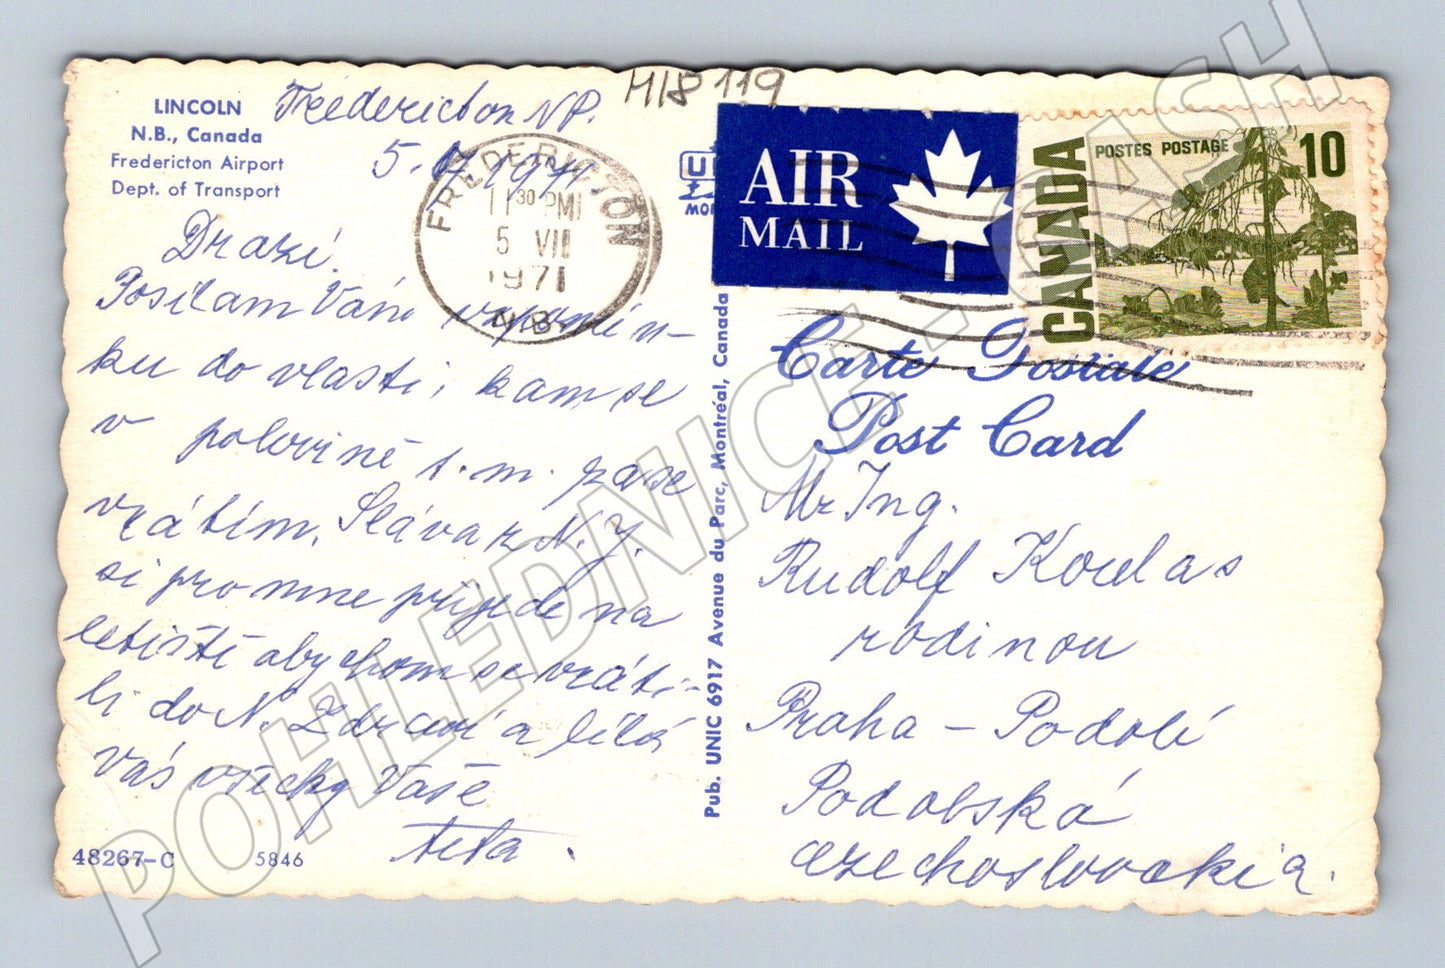 LINCOLN
N.B., Canada
Fredericton Airport
Dept. of Transport
Fredericton NP.
5. 1971
H18119
FREDERICTON
11 30 PM
5 VII
1971
N.B.
AIR
MAIL
CANADA
POSTES POSTAGE
10
Carte Postale
Post Card
Drazí.
Posílám Vám vzpomín-
ku do vlasti, kam se
v polovině t.m. zase
vrátím. Sláva z N.Y.
si pro mne přijede na
letiště abychom se vráti-
li do N. Zdraví a líbá
vás všecky Vaše
teta.
48267-C
5846
Pub. UNIC 6917 Avenue du Parc, Montréal, Canada
Mr Ing.
Rudolf Koulas
rodinou
Praha - Podolí
Podolská
Czechoslovakia.
POHLEDNICE - CASH